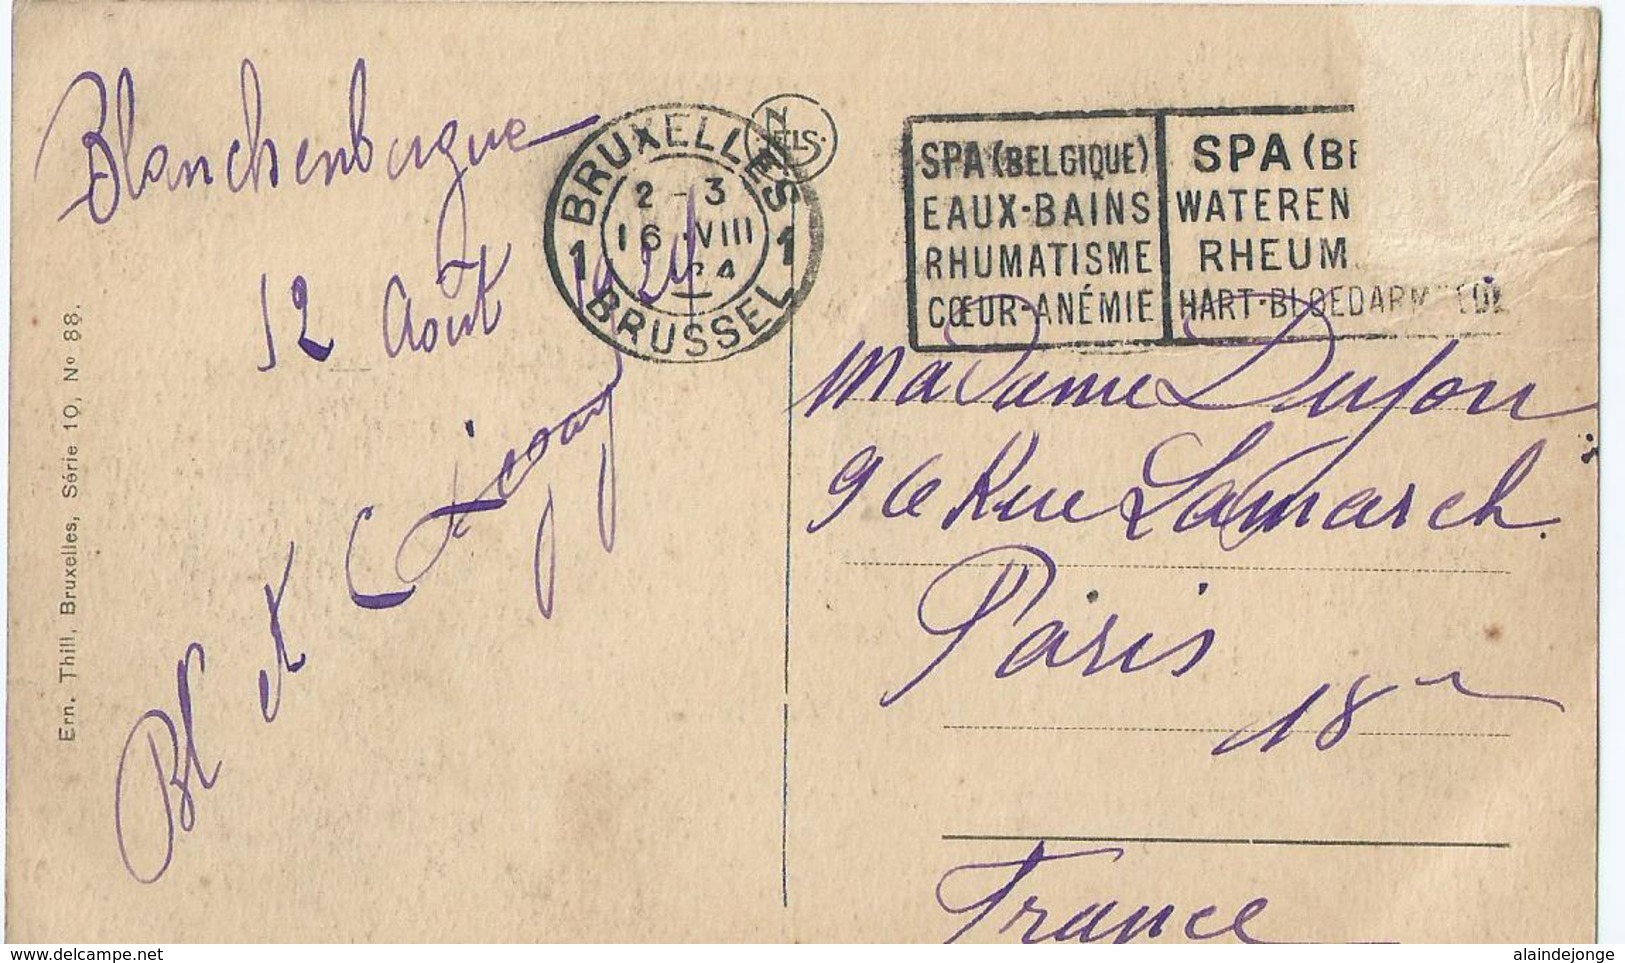 Blanchenbergue
12 Août 1924
Bl et
Ern. Thill, Bruxelles, Série 10, Nº 88.
NELS.
BRUXELLES
1 1
2 - 3
16 VIII
24
BRUSSEL
SPA (BELGIQUE)
EAUX-BAINS
RHUMATISME
CŒUR-ANÉMIE
SPA (BE
WATEREN
RHEUM
HART-BLOEDARM
Madame Dufour
96 Rue Lamarck
Paris
18
France
alaindejonge